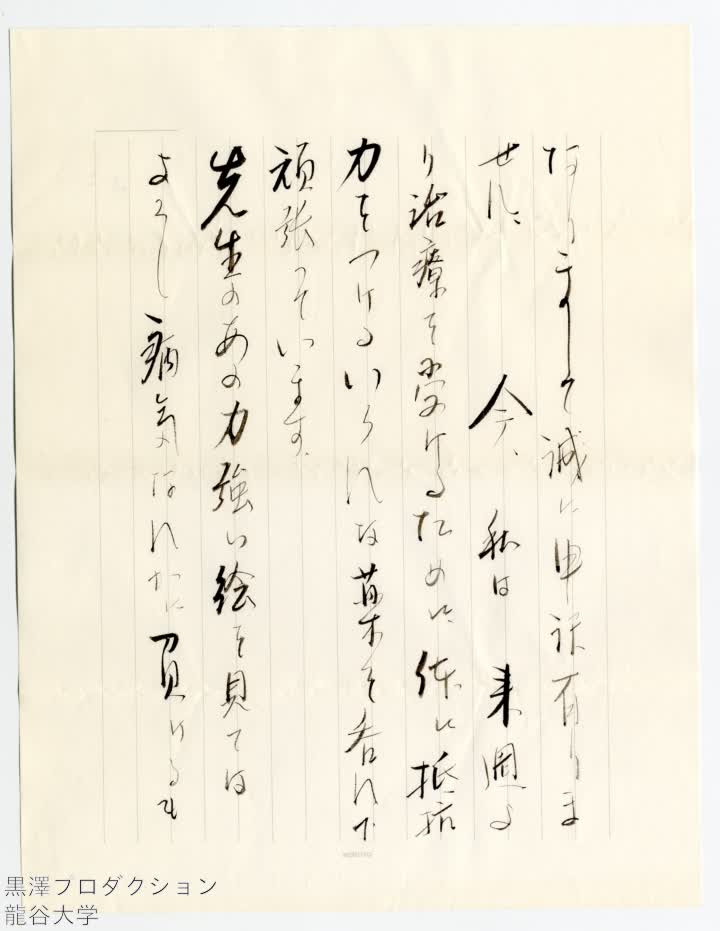 なりまして誠に申訳有りま
せん、 今、私は来週よ
り治療を受けるために、体に抵抗
力をつけるいろんな薬を呑んで
頑張っています。
先生のあの力強い絵を見ては
よろし病気なんかに負けるも
黒澤プロダクション
龍谷大学